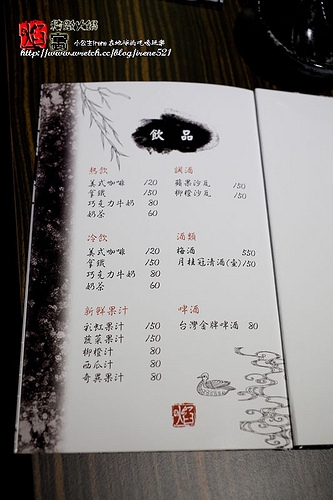 小公主Irene在地球的吃喝玩樂
http://www.wretch.cc/blog/irene521
飲 品
熱飲
美式咖啡 120
拿鐵 150
巧克力牛奶 80
奶茶 60
調酒
蘋果沙瓦 150
柳橙沙瓦 150
冷飲
美式咖啡 120
拿鐵 150
巧克力牛奶 80
奶茶 60
酒類
梅酒 550
月桂冠清酒(壺) 150
新鮮果汁
彩虹果汁 150
蔬菜果汁 150
柳橙汁 80
西瓜汁 80
奇異果汁 80
啤酒
台灣金牌啤酒 80